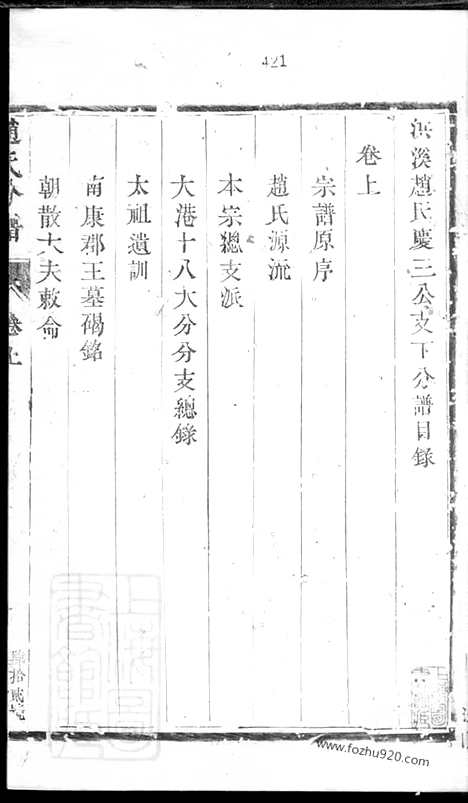 421
洪溪趙氏慶三公支下分譜目錄
卷上
宗譜原序
趙氏源流
本宗總支派
大港十八大分分支總錄
太祖遺訓
南康郡王墓碣銘
朝散大夫敕命
趙氏分譜
卷上
www.fozhu920.com